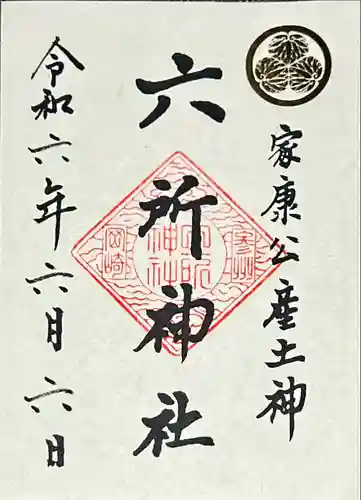 家康公産土神
六所神社
令和六年六月六日
参州
六所神社
岡崎